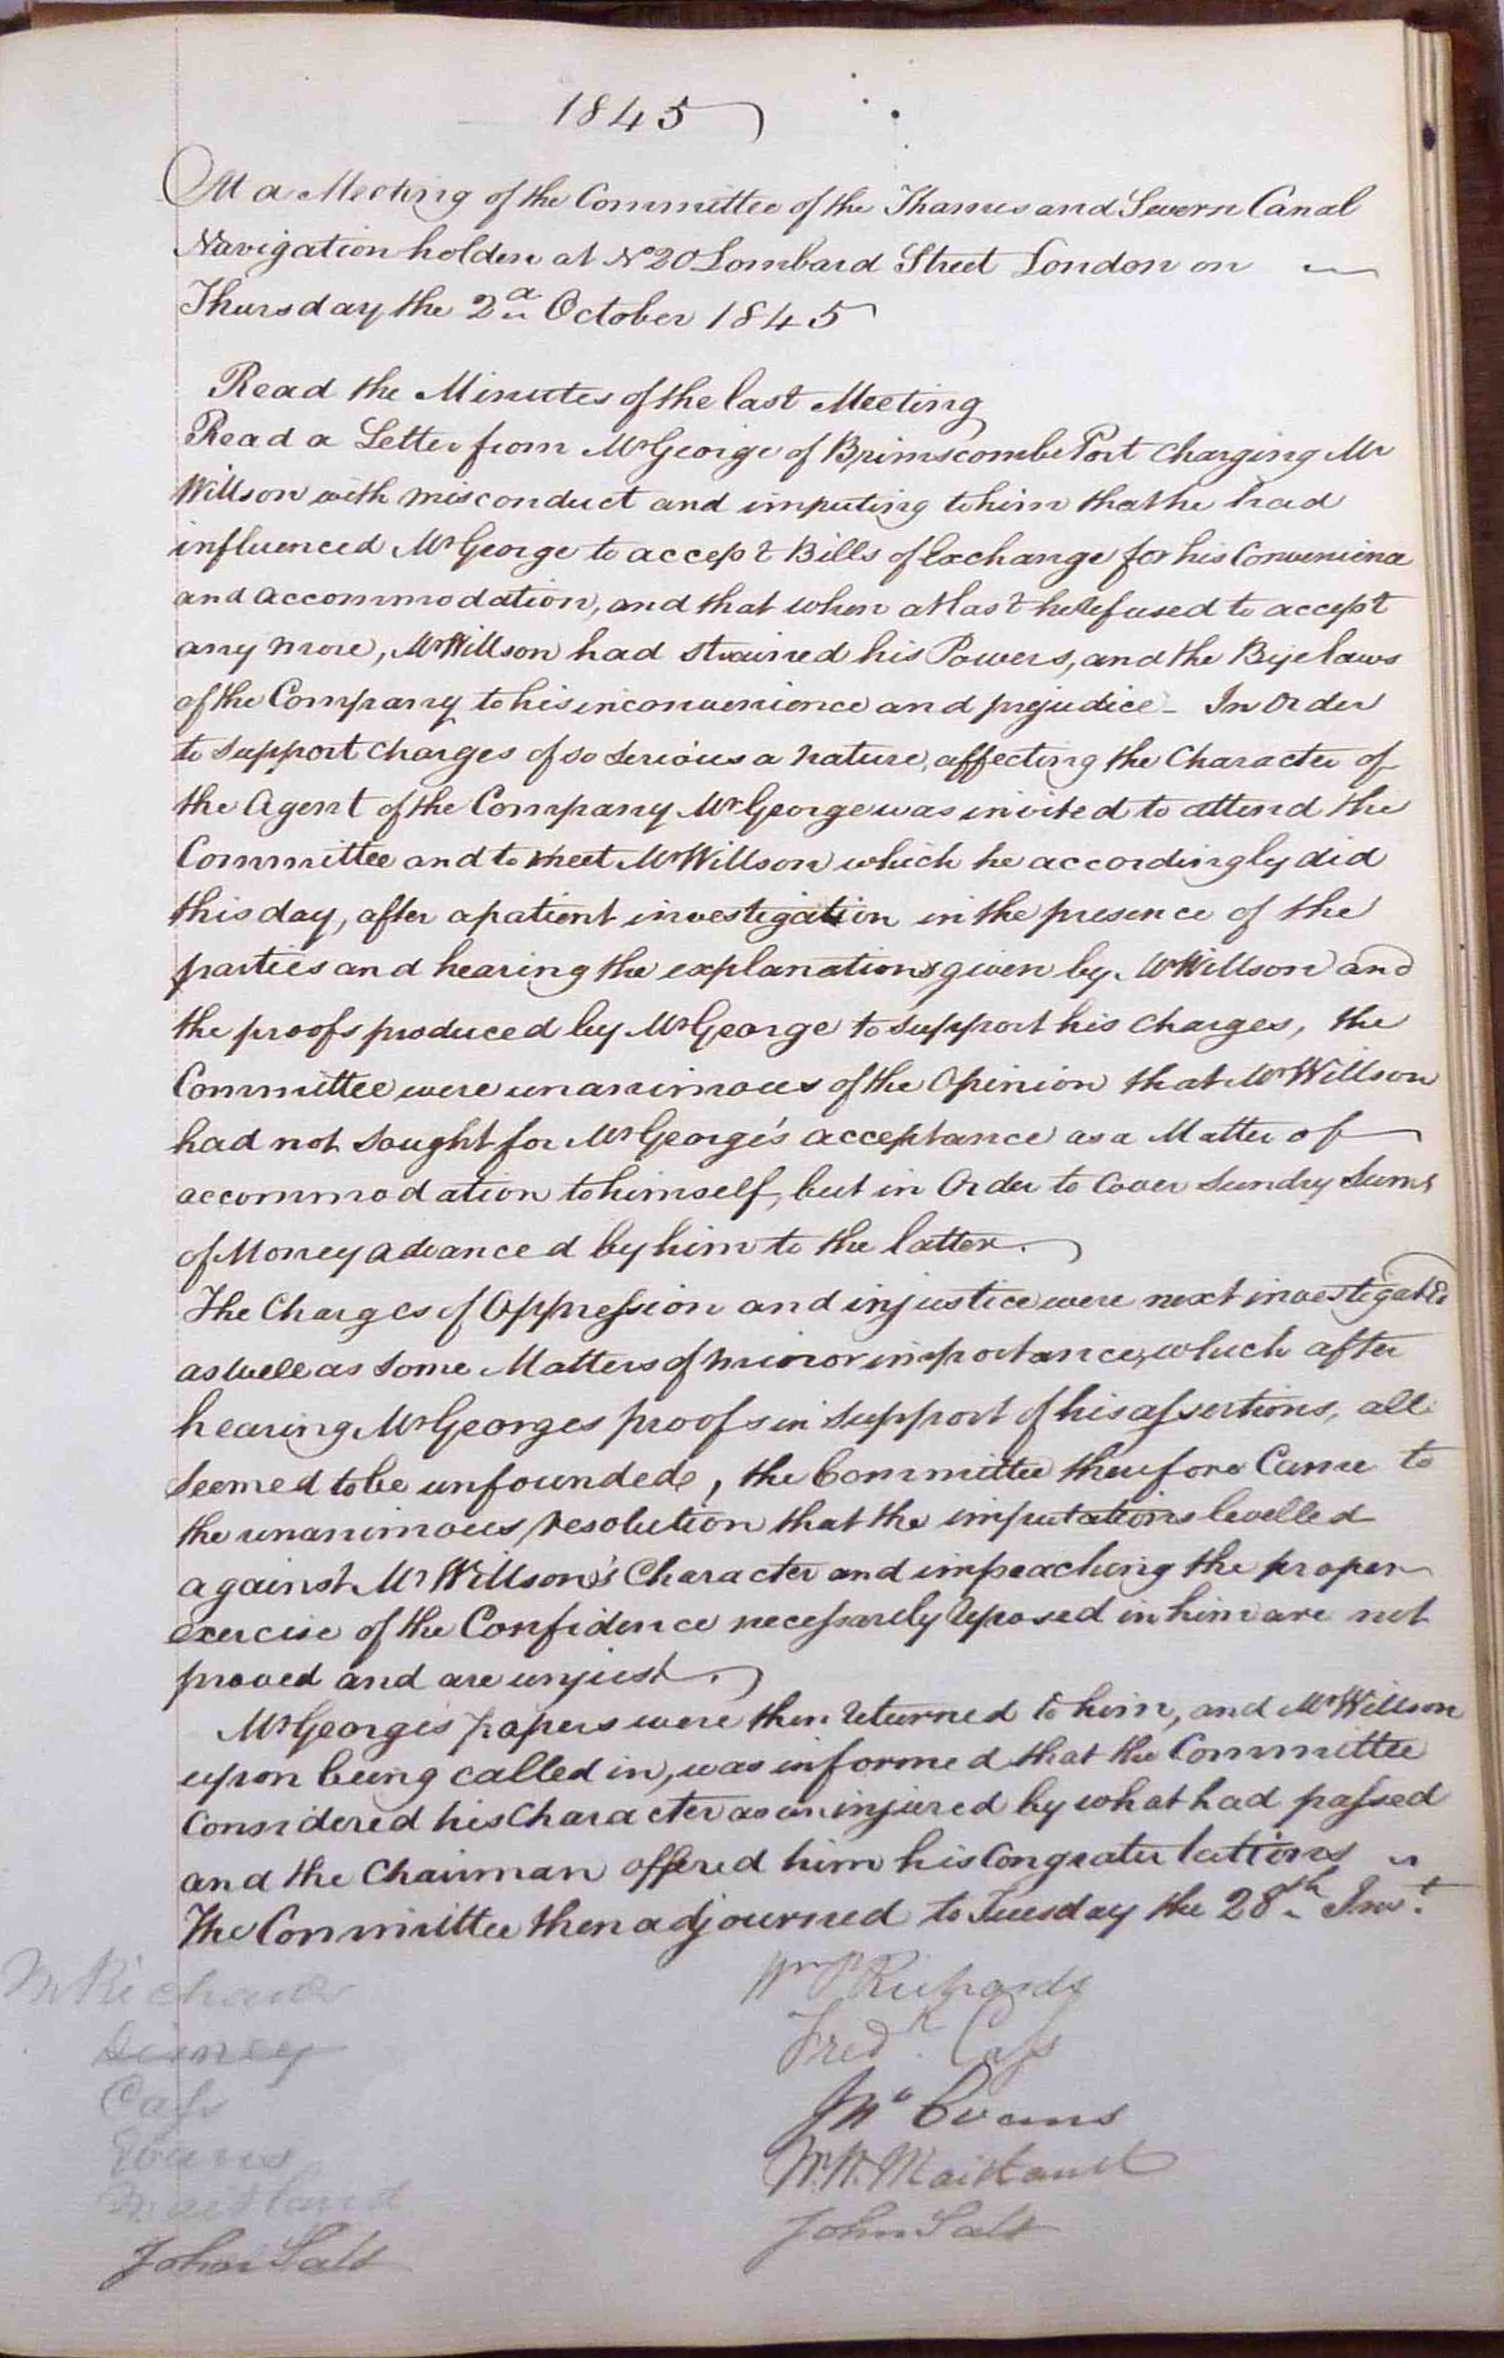 1845
At a Meeting of the Committee of the Thames and Severn Canal
Navigation holden at No 20 Lombard Street London on
Thursday the 2d October 1845
Read the Minutes of the last Meeting
Read a Letter from Mr George of Brimscombe Port charging Mr
Willson with misconduct and imputing to him that he had
influenced Mr George to accept Bills of Exchange for his Convenience
and accommodation, and that when at last he refused to accept
any more, Mr Willson had strained his Powers, and the Bye laws
of the Company to his inconvenience and prejudice - In Order
to support charges of so serious a nature, affecting the Character of
the Agent of the Company Mr George was invited to attend the
Committee and to meet Mr Willson which he accordingly did
this day, after a patient investigation in the presence of the
parties and hearing the explanations given by Mr Willson and
the proofs produced by Mr George to support his charges, the
Committee were unanimous of the Opinion that Mr Willson
had not sought for Mr George's acceptance as a Matter of
accommodation to himself, but in Order to Cover Sundry Sums
of Money advanced by him to the latter.
The Charges of Oppression and injustice were next investigated
as well as some Matters of minor importance, which after
hearing Mr Georges proofs in support of his assertions, all
seemed to be unfounded, the Committee therefore Came to
the unanimous resolution that the imputations levelled
against Mr Willson's Character and impeaching the proper
exercise of the Confidence necessarily reposed in him are not
proved and are unjust.
Mr George's papers were then returned to him, and Mr Willson
upon being called in, was informed that the Committee
Considered his Character as uninjured by what had passed
and the Chairman offered him his Congratulations
The Committee then adjourned to Tuesday the 28th Inst.
Wm P Richards
Fredk. Cass
Jno Evans
W. W. Maitland
John Salt
M Richards
Disney
Cass
Evans
Maitland
John Salt